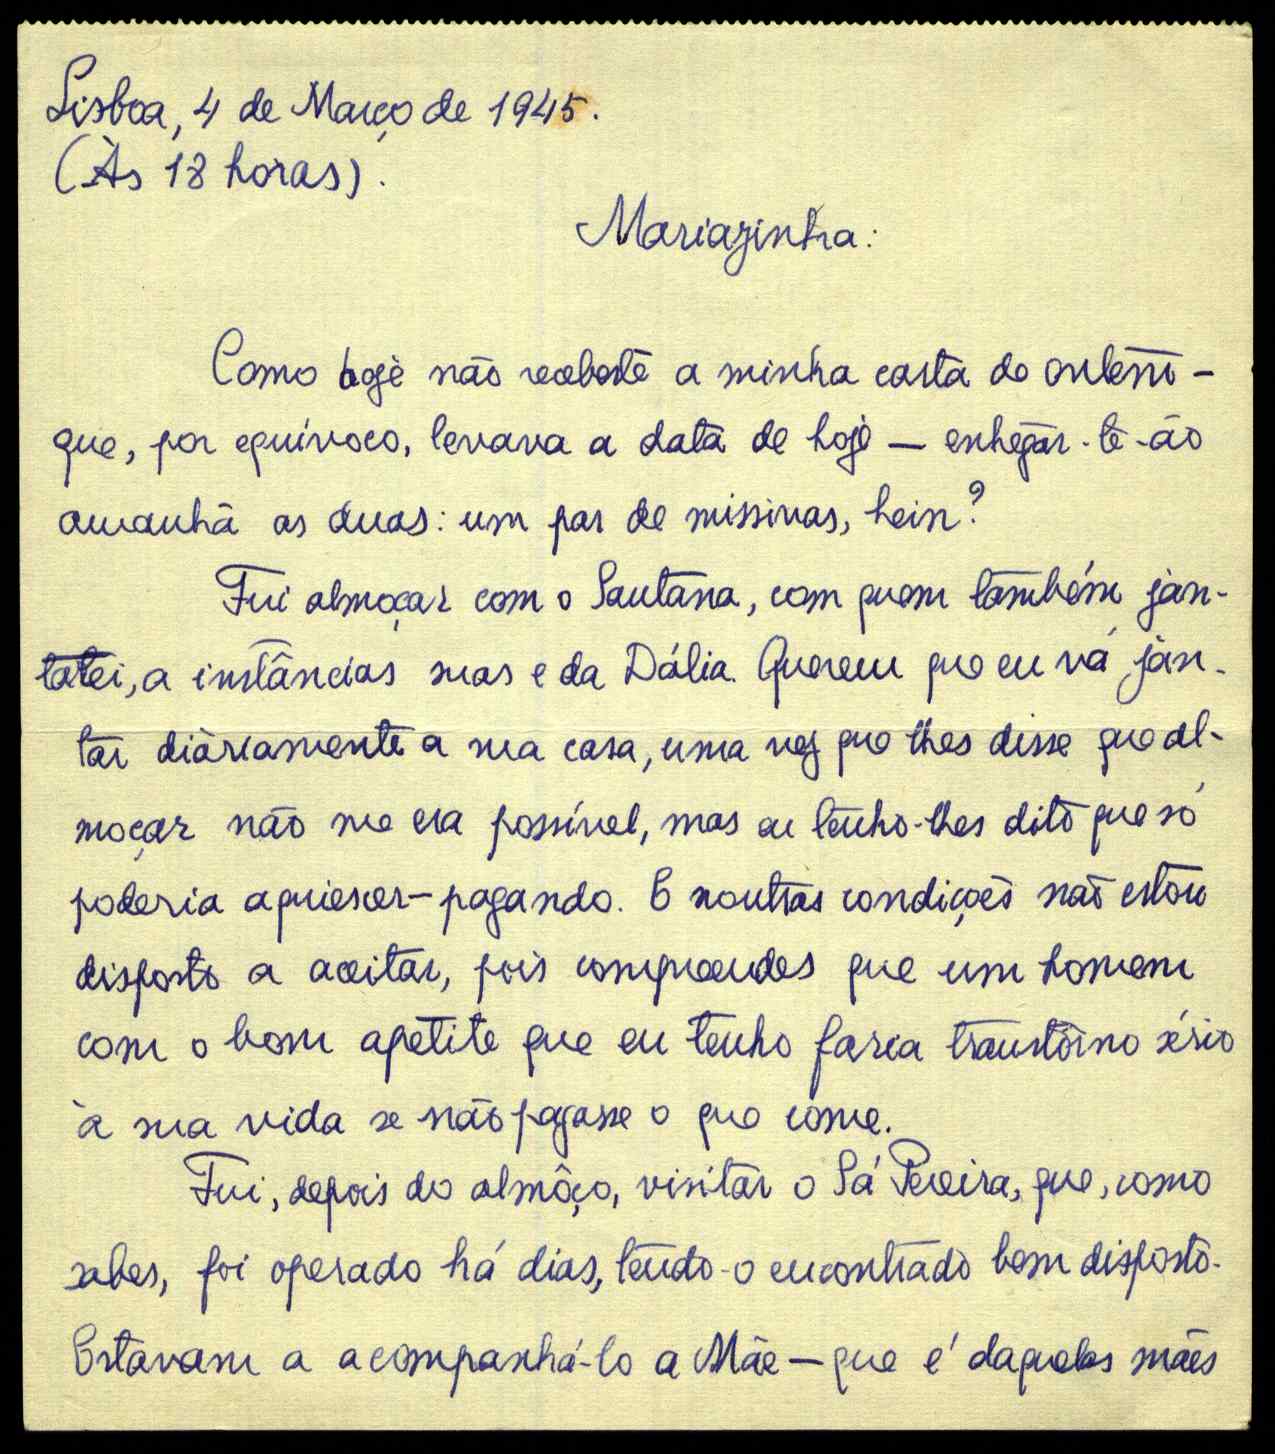 Lisboa, 4 de Março de 1945.
(Às 18 horas).
Mariazinha:
Como hoje não recebeste a minha carta de ontem -
que, por equívoco, levava a data de hoje — chegar-te-ão
amanhã as duas: um par de missivas, hein?
Fui almoçar com o Santana, com quem também jan-
tarei, a instâncias suas e da Dália. Querem que eu vá jan-
tar diàriamente a sua casa, uma vez que lhes disse que al-
moçar não me era possível, mas eu tenho-lhes dito que só
poderia aquiescer — pagando. E noutras condições não estou
disposto a aceitar, pois compreendes que um homem
com o bom apetite que eu tenho faria transtôrno sério
à sua vida se não pagasse o que come.
Fui, depois do almôço, visitar o Sá Pereira, que, como
sabes, foi operado há dias, tendo-o encontrado bem disposto.
Estavam a acompanhá-lo a Mãe — que é daquelas mães